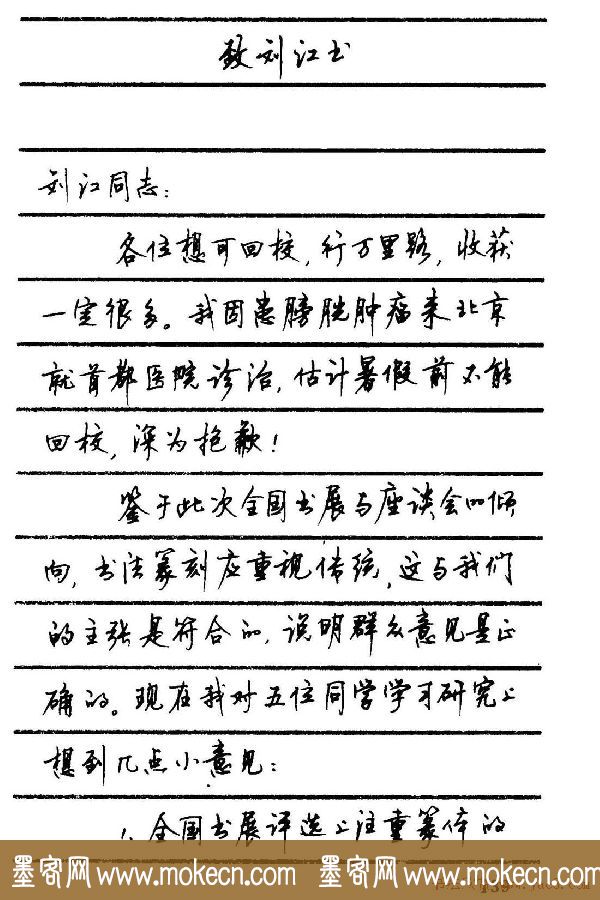 致刘江书
刘江同志：
各位想可回校，行万里路，收获
一定很多。我因患膀胱肿瘤来北京
就首都医院诊治，估计暑假前不能
回校，深为抱歉！
鉴于此次全国书展与座谈会的倾
向，书法篆刻应重视传统，这与我们
的主张是符合的，说明群众意见是正
确的。现在我对五位同学学习研究上
想到几点小意见：
1、全国书展评选上注重篆体的
墨客网 www.mokecn.com 墨客网 www.mokecn.com